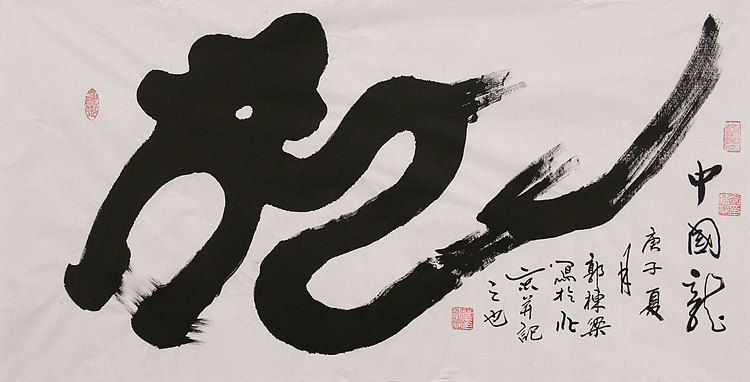 龍
中國龍
庚子夏
月
郭棟梁
寫於北
京并記
之也